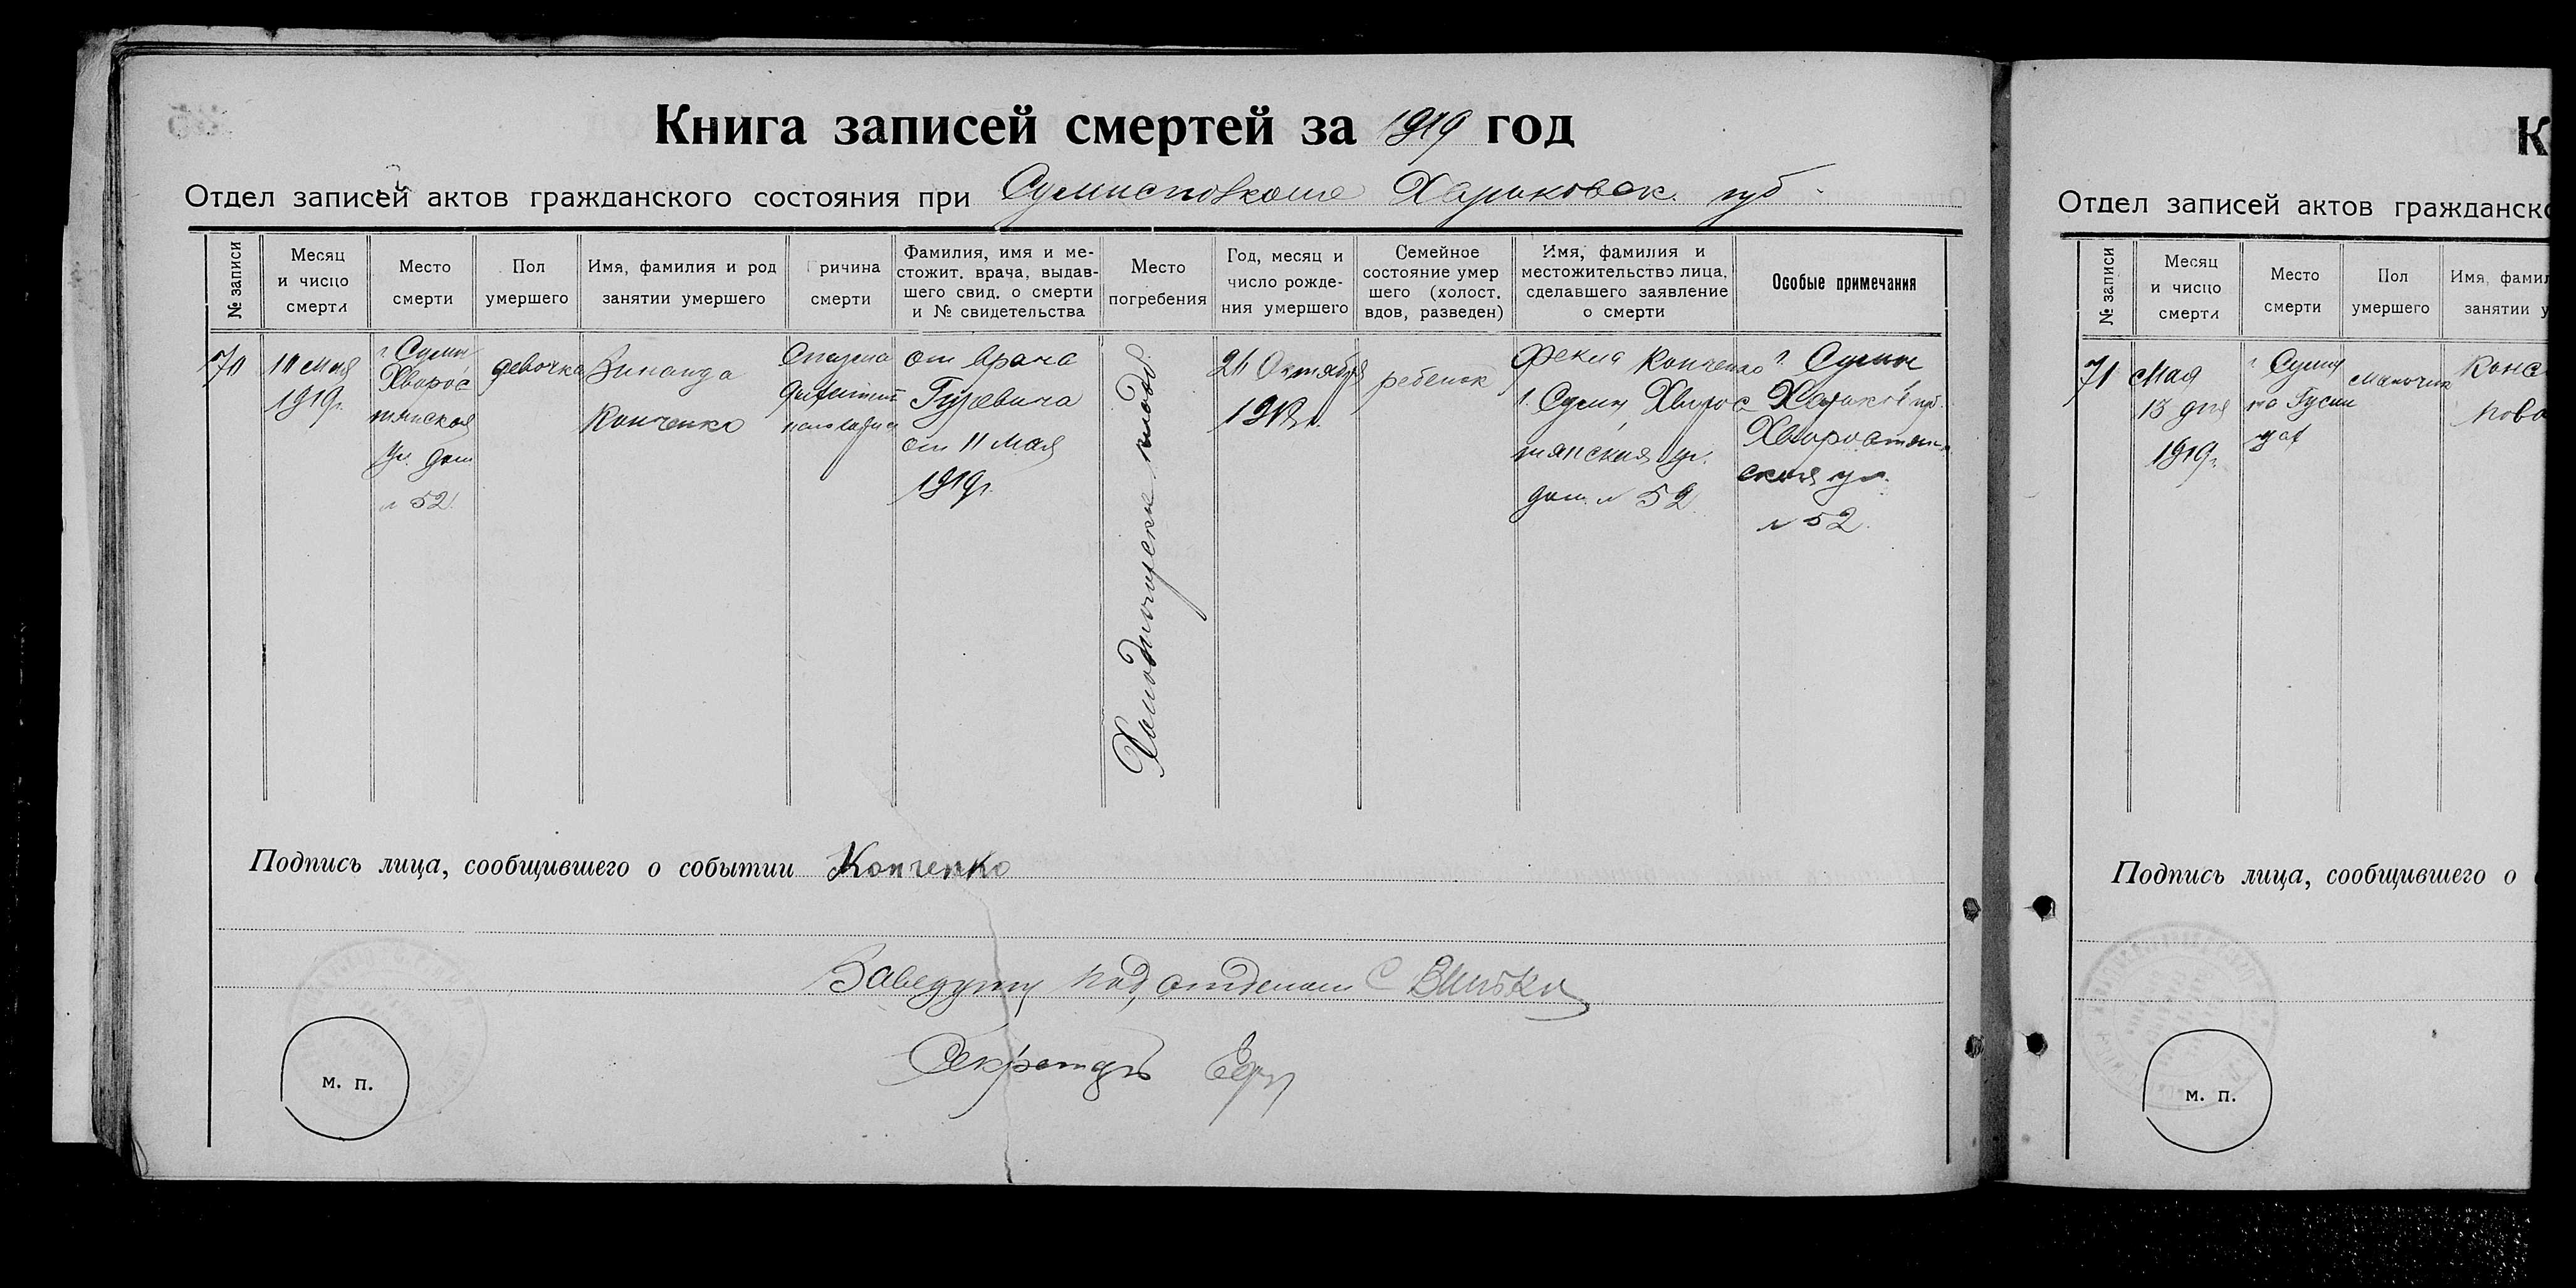 Книга записей смертей за 1919 год
Отдел записей актов гражданского состояния при Харьковск. губ.
№ записи
Месяц и число смерти
Место смерти
Пол умершего
Имя, фамилия и род занятии умершего
Причина смерти
Фамилия, имя и ме-
стожит. врача, выдав-
шего свид. о смерти
и № свидетельства
Место погребения
Год, месяц и
число рожде-
ния умершего
Семейное
состояние умер
шего (холост.
вдов, разведен)
Имя, фамилия и
местожительство лица,
сделавшего заявление
о смерти
Особые примечания
70
10 мая
1919г.
г. Сумы
Хворос
тянская
ул. дом
№ 52.
девочка
Зинаида
Конченко
от врача
Гуревича
от 11 мая
1919г.
Октября
ребенок
Фекла Конченко
г. Сумы Хворос
тянская ул.
дом № 52
г. Сумы
Харьков губ.
Хворостян-
ская ул.
№ 52.
Подпись лица, сообщившего о событии Конченко
Заведущ под,отделом
Секретарь
м. п.
К
Отдел записей актов гражданско
№ записи
Месяц и число смерти
Место смерти
Пол умершего
Имя, фамил
занятии у
71
Мая
13 дня
1919г.
г Сумы
Мальчик
Конс
Ново
Подпись лица, сообщившего о
м. п.